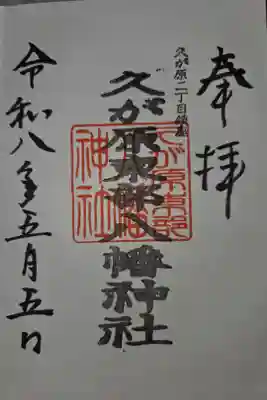 奉拝
久が原二丁目鎮座
久が原東部八幡神社
令和八年五月五日